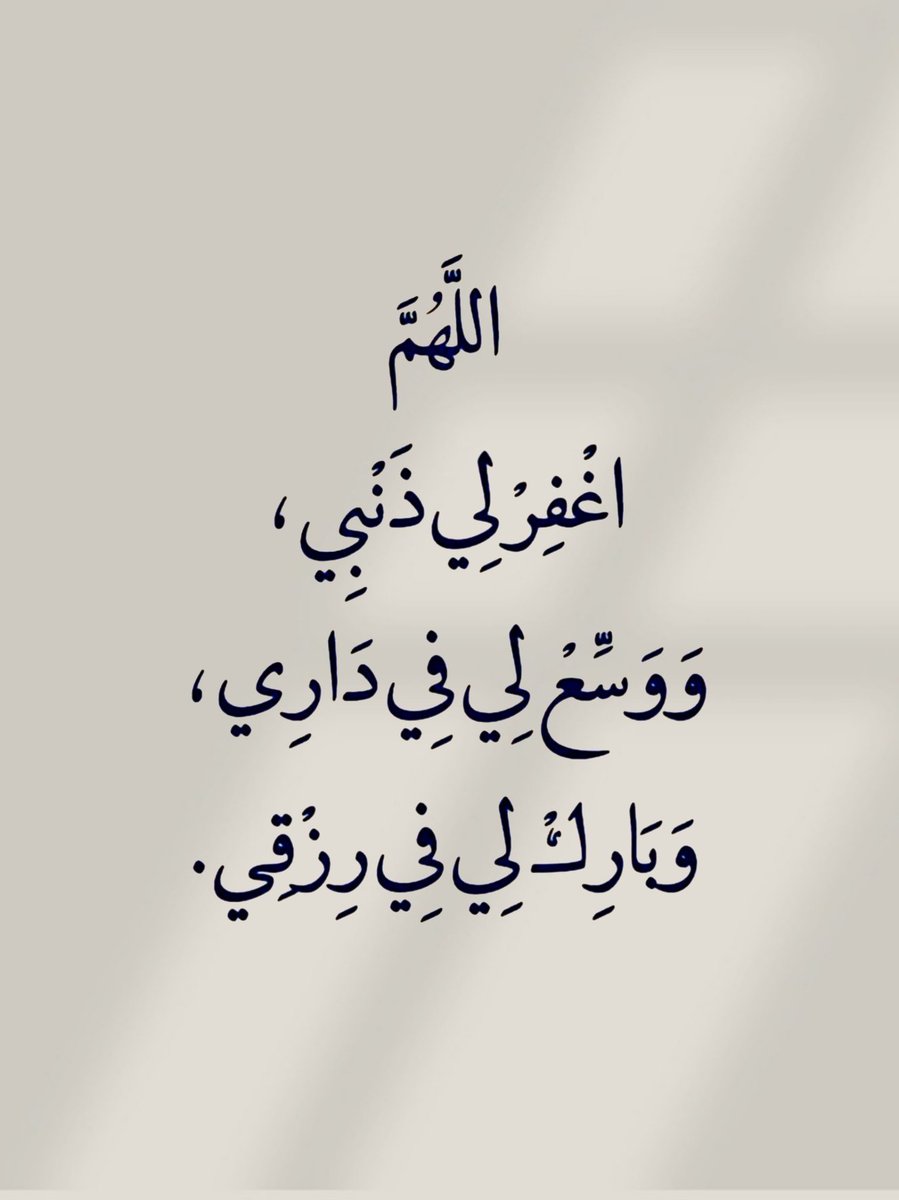 اللَّهُمَّ
اغْفِرْ لِي ذَنْبِي،
وَوَسِّعْ لِي فِي دَارِي،
وَبَارِكْ لِي فِي رِزْقِي.